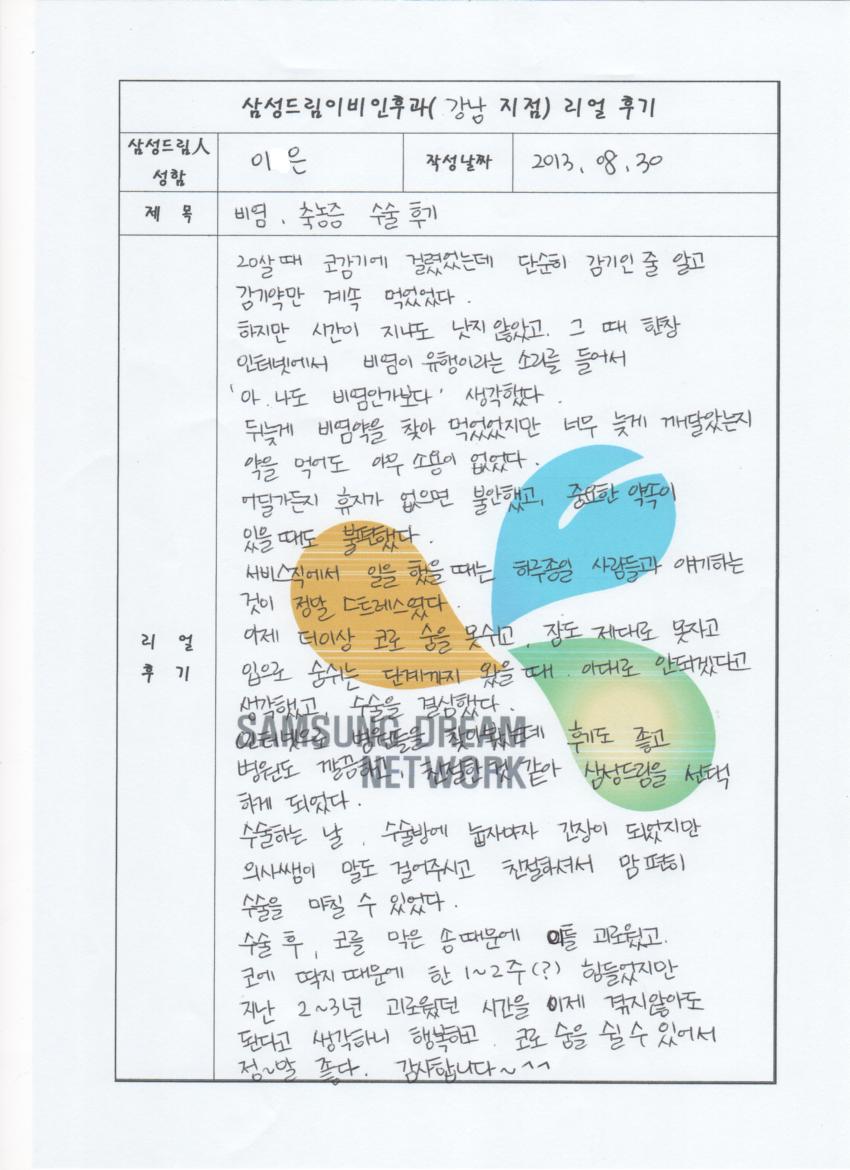 삼성드림이비인후과( 강남 지점) 리얼 후기
삼성드림人 성함
이 은
작성날짜
2013. 08. 30
제 목
비염, 축농증 수술 후기
리 얼
후 기
20살 때 코감기에 걸렸었는데 단순히 감기인 줄 알고
감기약만 계속 먹었었다.
하지만 시간이 지나도 낫지 않았고. 그 때 한창
인터넷에서 비염이 유행이라는 소리를 들어서
'아. 나도 비염인가보다' 생각했다.
뒤늦게 비염약을 찾아 먹었었지만 너무 늦게 깨달았는지
약을 먹어도 아무 소용이 없었다.
어딜가든지 휴지가 없으면 불안했고, 중요한 약속이
있을 때도 불편했다.
서비스직에서 일을 했을 때는 하루종일 사람들과 얘기하는
것이 정말 스트레스였다.
이제 더이상 코로 숨을 못쉬고, 잠도 제대로 못자고
입으로 숨쉬는 단계까지 왔을 때. 이대로 안되겠다고
생각했고, 수술을 결심했다.
인터넷으로 병원들을 찾아봤는데 후기도 좋고
병원도 깔끔하고, 친절한 것 같아 삼성드림을 선택
하게 되었다.
SAMSUNG DREAM
NETWORK
수술하는 날, 수술방에 눕자마자 긴장이 되었지만
의사쌤이 말도 걸어주시고 친절하셔서 맘 편히
수술을 마칠 수 있었다.
수술 후, 코를 막은 솜 때문에 이틀 괴로웠고.
코에 딱지 때문에 한 1~2주(?) 힘들었지만
지난 2~3년 괴로웠던 시간을 이제 겪지않아도
된다고 생각하니 행복하고. 코로 숨을 쉴 수 있어서
정~말 좋다. 감사합니다~^^